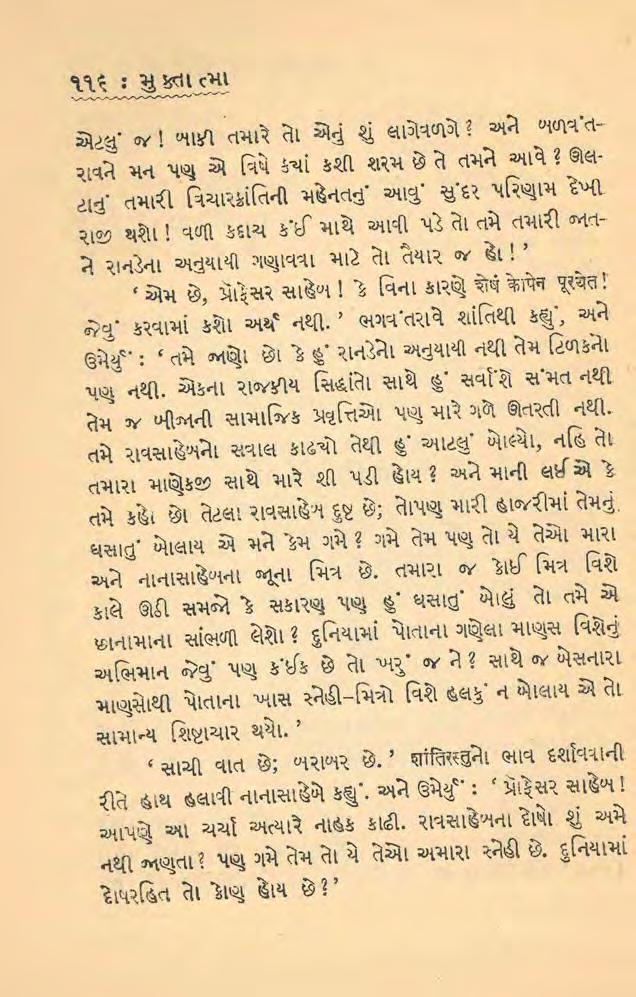 ૧૧૬ : મુક્તાત્મા
એટલું જ! બાકી તમારે તો એનું શું લાગેવળગે? અને બળવંત-
રાવને મન પણ એ વિષે ક્યાં કશી શરમ છે તે તમને આવે? ઊલ-
ટાનું તમારી વિચારક્રાંતિની મહેનતનું આવું સુંદર પરિણામ દેખી
રાજી થશો! વળી કદાચ કંઈ માથે આવી પડે તો તમે તમારી જાત-
ને રાનડેના અનુયાયી ગણાવવા માટે તો તૈયાર જ હો!’
‘એમ છે, પ્રૉફેસર સાહેબ! કે વિના કારણે शेषं कोपेन पूरयेत!
જેવું કરવામાં કશો અર્થ નથી.’ ભગવંતરાવે શાંતિથી કહ્યું, અને
ઉમેર્યું : ‘તમે જાણો છો કે હું રાનડેનો અનુયાયી નથી તેમ ટિળકનો
પણ નથી. એકના રાજકીય સિદ્ધાંતો સાથે હું સર્વાંશે સંમત નથી
તેમ જ બીજાની સામાજિક પ્રવૃત્તિઓ પણ મારે ગળે ઊતરતી નથી.
તમે રાવસાહેબનો સવાલ કાઢચો તેથી હું આટલું બોલ્યો, નહિ તો
તમારા માણેકજી સાથે મારે શી પડી હોય? અને માની લઈએ કે
તમે કહો છો તેટલા રાવસાહેબ દુષ્ટ છે; તોપણ મારી હાજરીમાં તેમનું
ઘસાતું બોલાય એ મને કેમ ગમે? ગમે તેમ પણ તો યે તેઓ મારા
અને નાનાસાહેબના જૂના મિત્ર છે. તમારા જ કોઈ મિત્ર વિશે
કાલે ઊઠી સમજો કે સકારણ પણ હું ઘસાતું બોલું તો તમે એ
છાનામાના સાંભળી લેશો? દુનિયામાં પોતાના ગણેલા માણસ વિશેનું
અભિમાન જેવું પણ કંઈક છે તો ખરું જ ને? સાથે જ બેસનારા
માણસોથી પોતાના ખાસ સ્નેહી–મિત્રો વિશે હલકું ન બોલાય એ તો
સામાન્ય શિષ્ટાચાર થયો.’
‘સાચી વાત છે; બરાબર છે.’ शांतिरस्तुનો ભાવ દર્શાવવાની
રીતે હાથ હલાવી નાનાસાહેબે કહ્યું. અને ઉમેર્યું : ‘પ્રૉફેસર સાહેબ!
આપણે આ ચર્ચા અત્યારે નાહક કાઢી. રાવસાહેબના દોષો શું અમે
નથી જાણતા? પણ ગમે તેમ તો યે તેઓ અમારા સ્નેહી છે. દુનિયામાં
દોષરહિત તો કોણ હોય છે?’